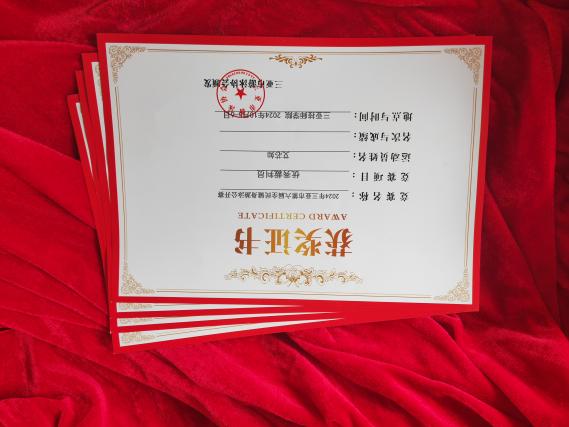 获奖证书
AWARD CERTIFICATE
竞赛名称：2024年三亚市第六届全民健身游泳公开赛
竞赛项目：优秀裁判员
运动员姓名：
名次与成绩：
地点与时间：三亚技师学院 2024年10月
三亚市游泳协会颁发